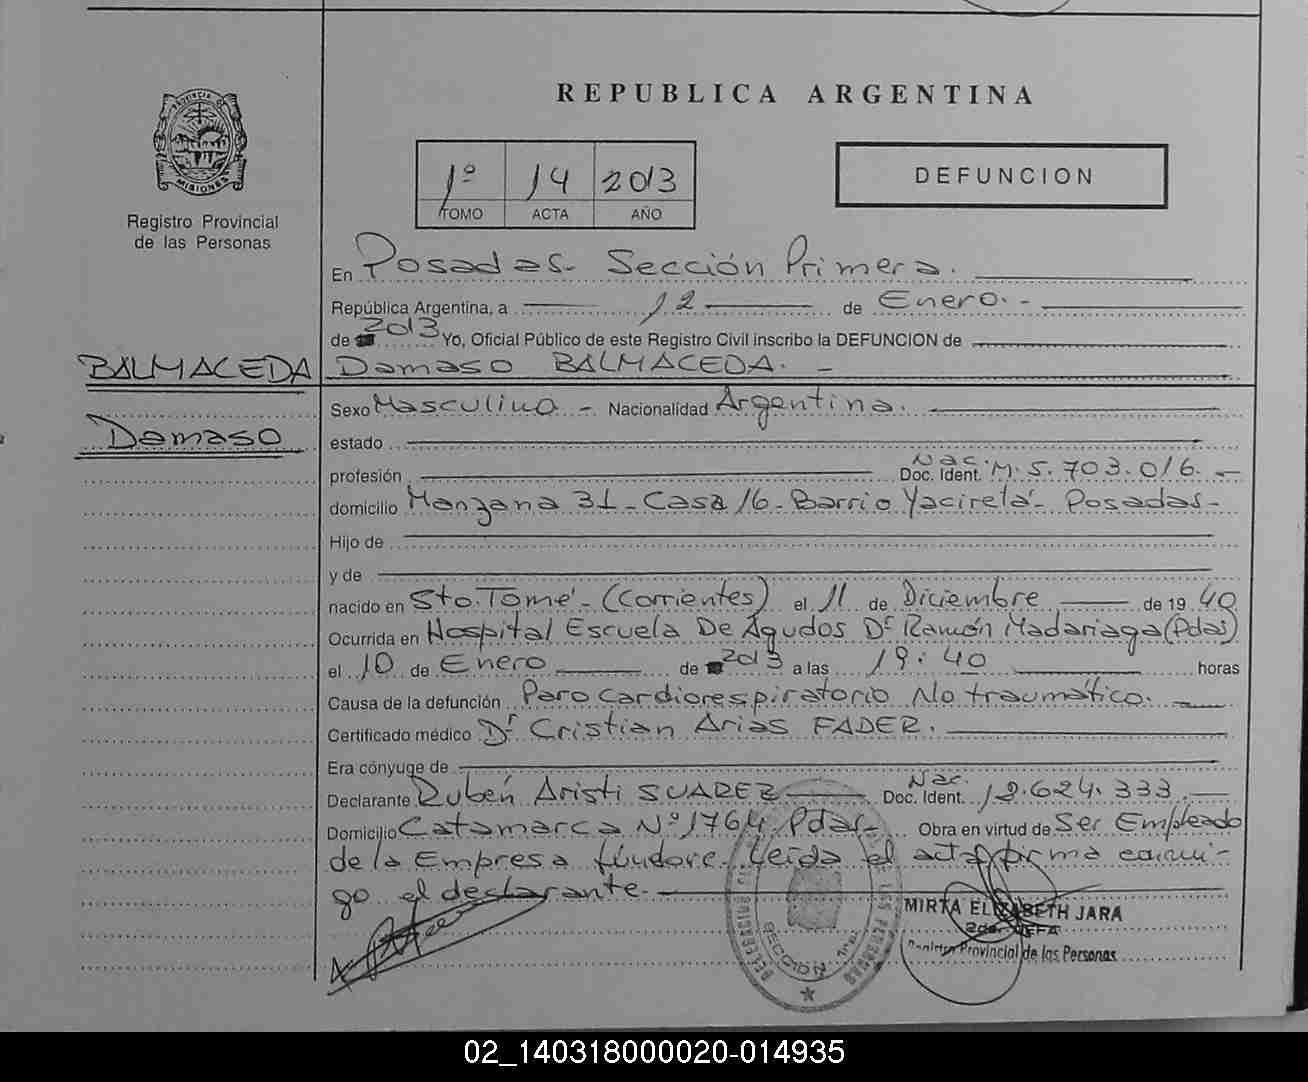 REPUBLICA ARGENTINA
PROVINCIA DE
MISIONES
Registro Provincial
de las Personas
1º 14 2013
TOMO ACTA AÑO
DEFUNCION
En Posadas- Sección Primera.
República Argentina, a 12 de Enero.-
de 2013 Yo, Oficial Público de este Registro Civil inscribo la DEFUNCION de
BALMACEDA
Damaso
Damaso BALMACEDA. -
Sexo Masculino - Nacionalidad Argentina.
estado
profesión Doc. Ident. Nac. M. 5.703.016. -
domicilio Manzana 31- Casa 16- Barrio Yacireta- Posadas-
Hijo de
y de
nacido en Sto. Tomé- (Corrientes) el 11 de Diciembre de 19 40
Ocurrida en Hospital Escuela De Agudos Dr Ramón Madariaga (Pdas)
el 10 de Enero de 2013 a las 19:40 horas
Causa de la defunción Paro cardiorespiratorio No traumático.
Certificado médico Dr Cristian Arias FADER.
Era cónyuge de
Declarante Rubén Aristi SUAREZ Doc. Ident. Nac. 12.624.333
Domicilio Catamarca Nº 1764 Pdas- Obra en virtud de Ser Empleado
de la Empresa fúndore. Leída el acta firma conmi-
go el declarante.
DE LAS PERSONAS
SECCION 1ra.
MIRTA ELIZABETH JARA
2da. JEFA
Registro Provincial de las Personas
02_140318000020-014935